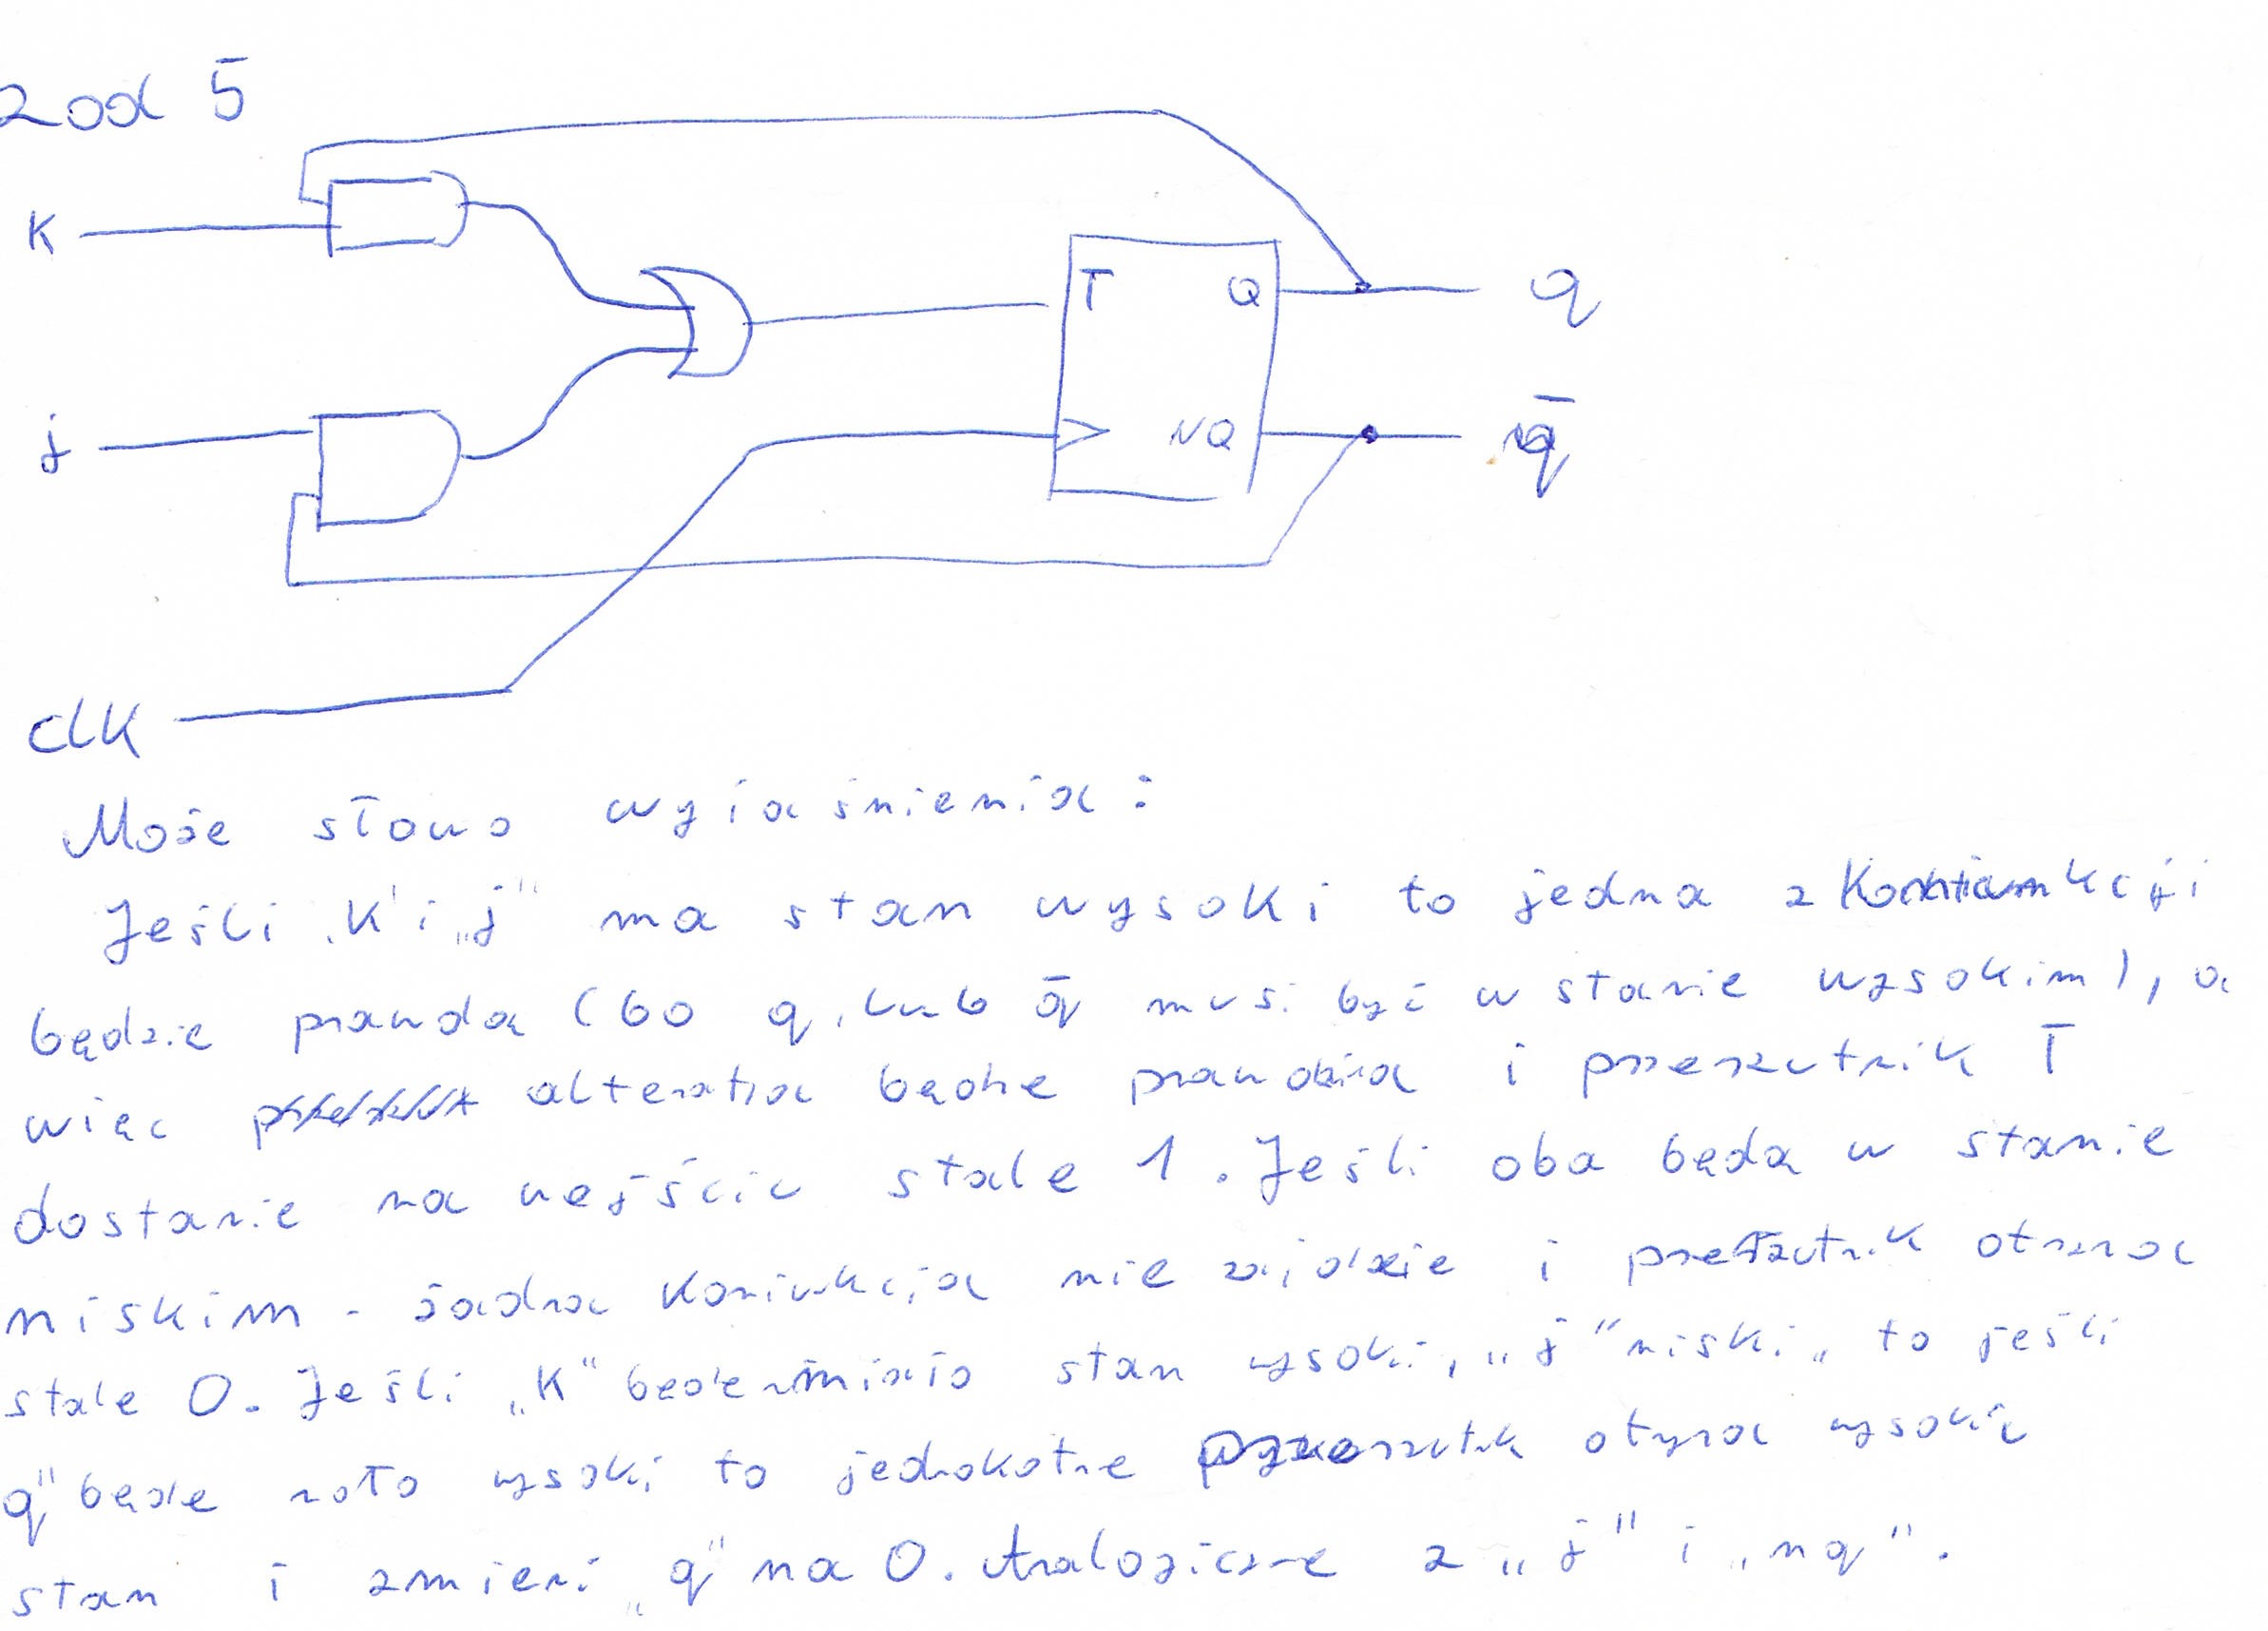 zad 5
K
T Q q
j
NQ q̄
CLK
Może słowo wyjaśnienia:
Jeśli „K" i „j" ma stan wysoki to jedna z koniunkcji
będzie prawdą (bo q lub q̄ musi być w stanie wysokim), a
więc alteratna będzie prawdziwa i przerzutnik T
dostanie na wejściu stale 1. Jeśli oba będą w stanie
niskim - żadna koniunkcja nie zajdzie i przerzutnik otrzyma
stale 0. Jeśli „K" będzie miało stan wysoki, „j" niski, to jeśli
q" będzie miało wysoki to jednokrotnie przerzutnik otrzyma wysoki
stan i zmieni „q" na 0. Analogicznie z „j" i „nq".